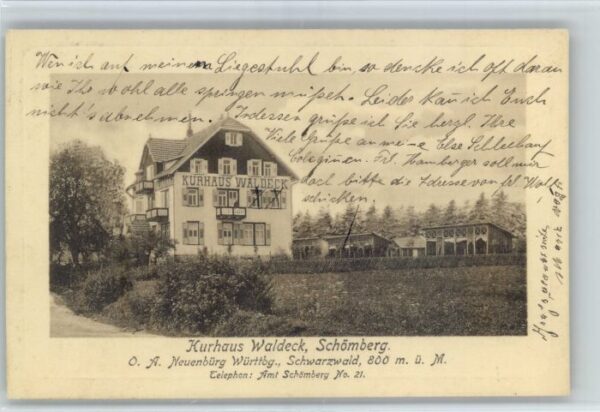 Wenn ich auf meinem Liegestuhl bin, so dencke ich oft daran
wie Ihr wohl alle springen müsst. Leider kan ich Euch
nicht's abnehmen. Indessen grüße ich Sie herzl. Ihre
Viele Grüße an meine Else
Coleginnen. Frl. Hamburger soll mir
doch bitte die Adresse von
schicken.
KURHAUS WALDECK
Kurhaus Waldeck, Schömberg.
O. A. Neuenbürg Württbg., Schwarzwald, 800 m. ü. M.
Telephon: Amt Schömberg No. 21.